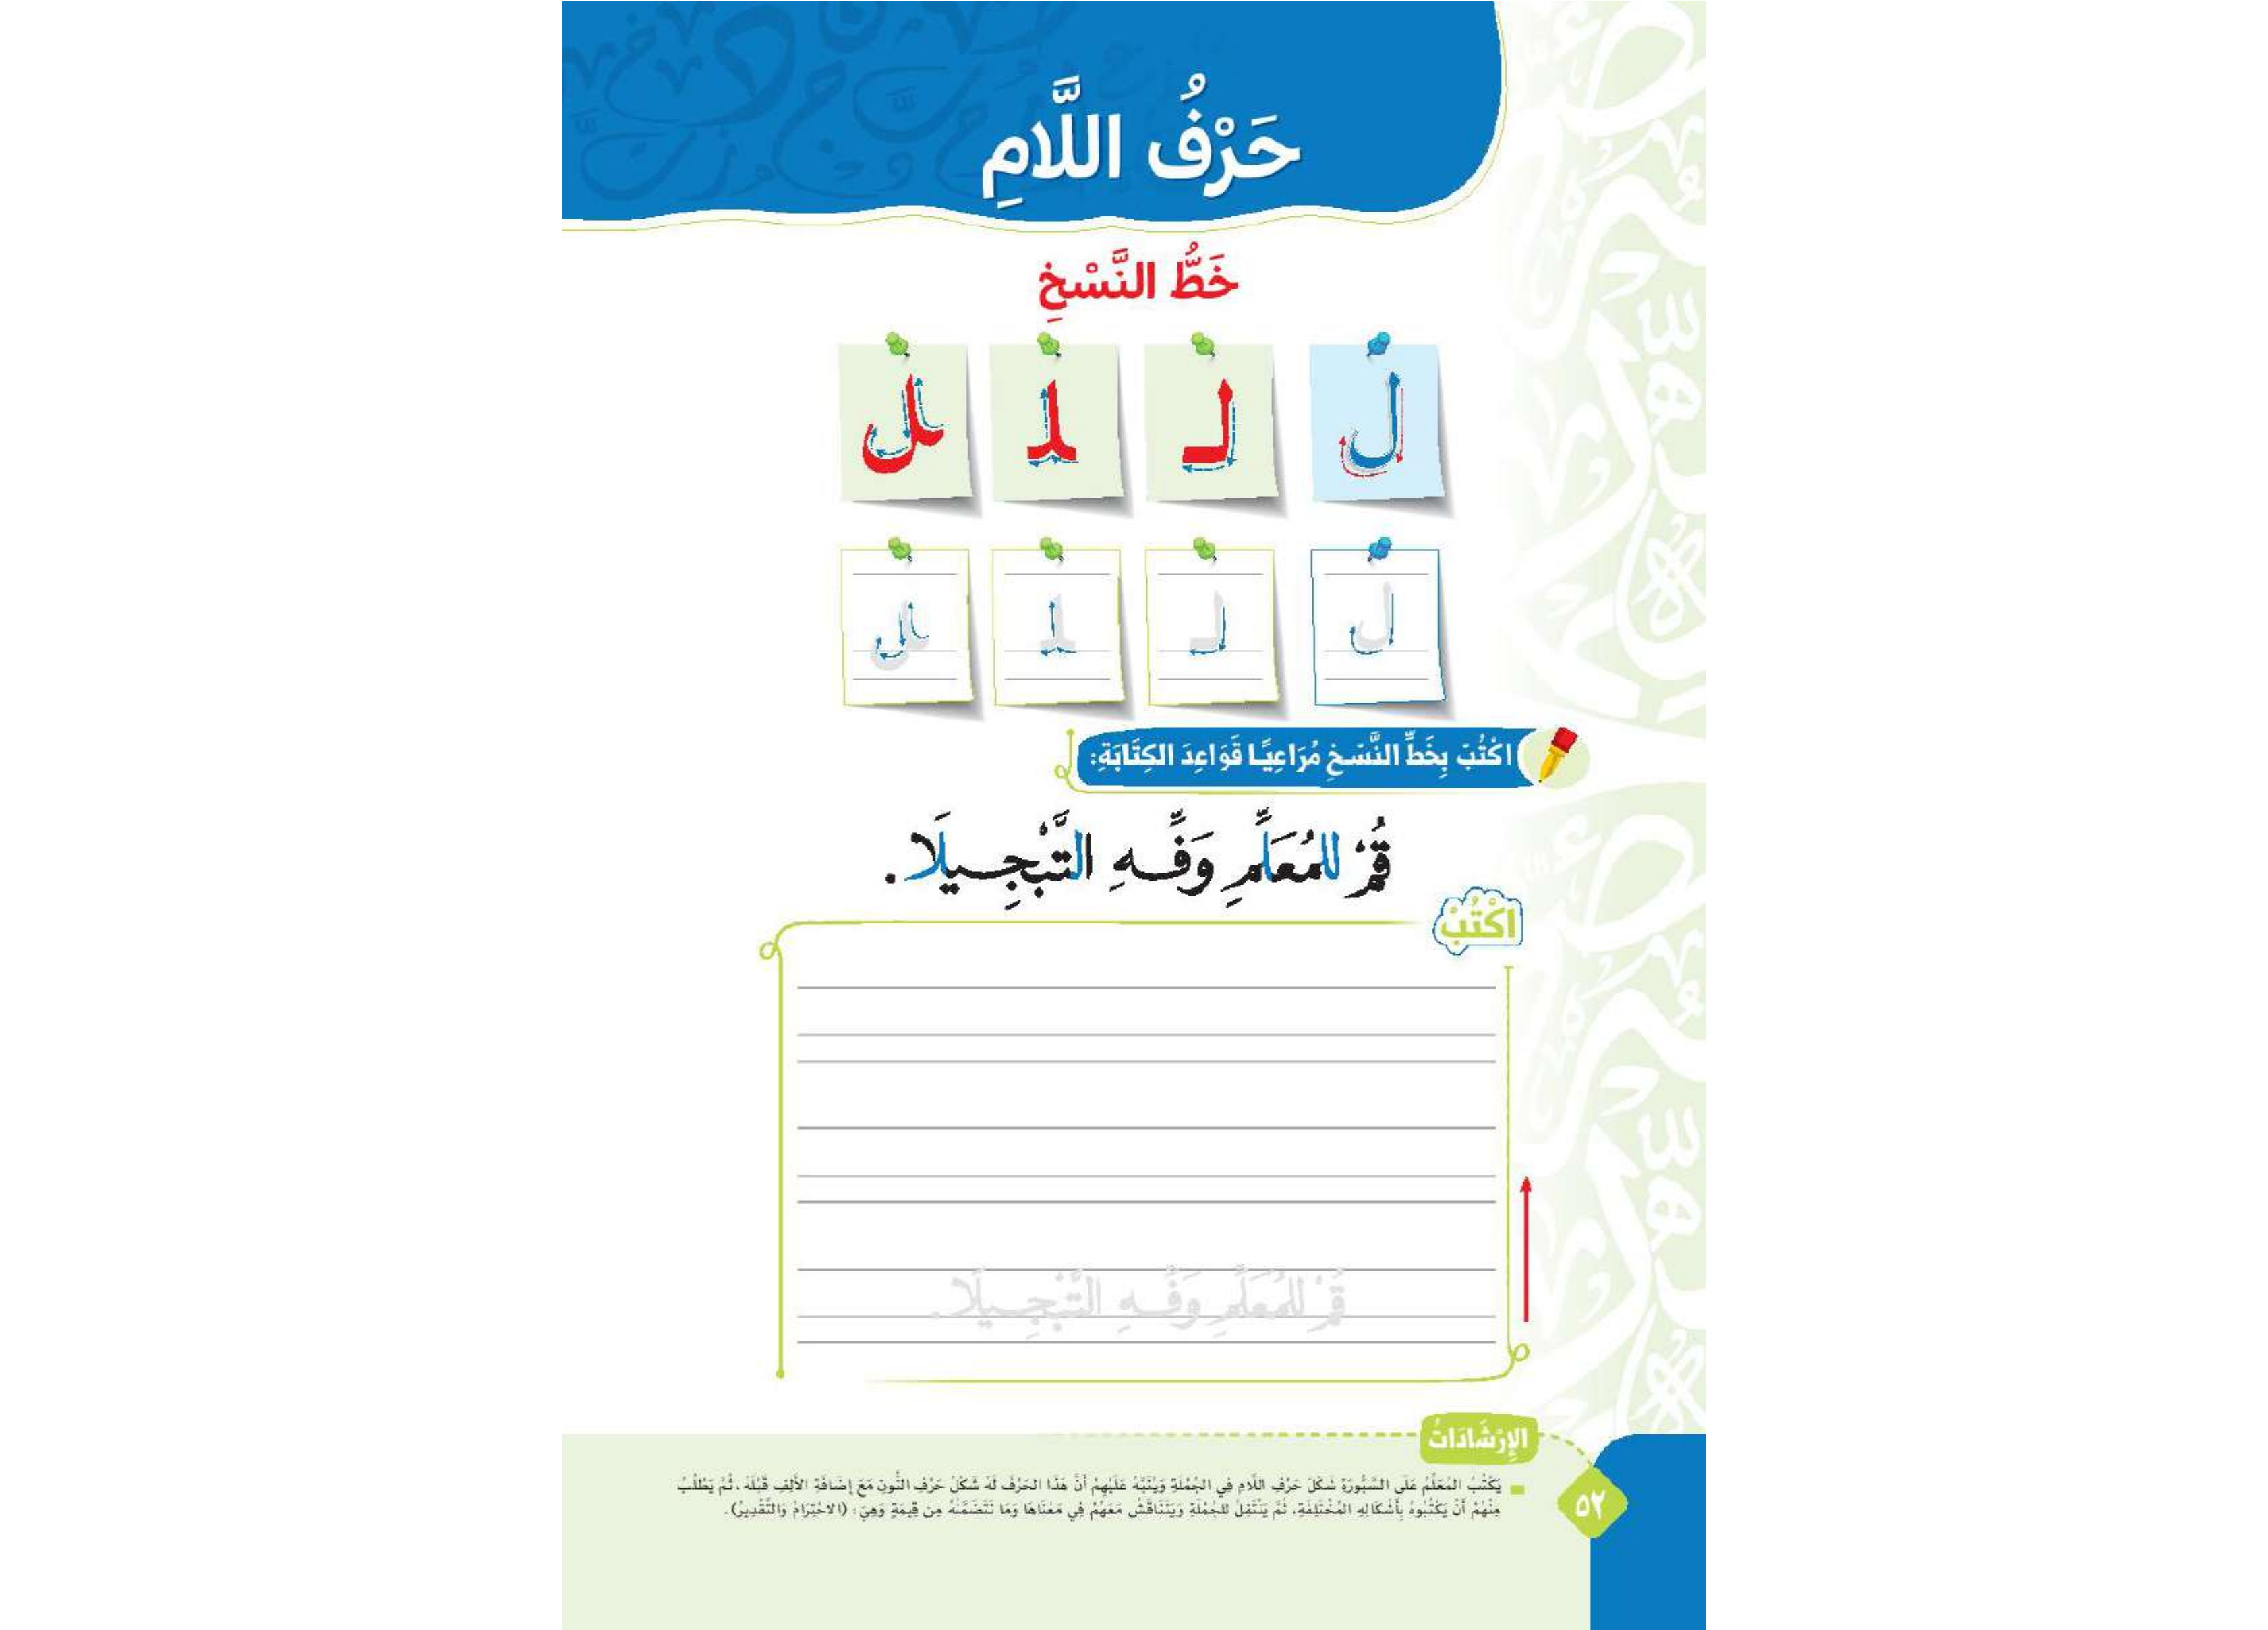 حَرْفُ اللَّامِ
خَطُّ النَّسْخِ
ل لـ ـلـ ـل
ل لـ ـلـ ـل
اكْتُبْ بِخَطِّ النَّسْخِ مُرَاعِيًا قَوَاعِدَ الكِتَابَةِ:
قُمْ للمُعَلِّمِ وَفِّـهِ التَّبْجِـيلَا.
اكْتُبْ
قُمْ للمُعَلِّمِ وَفِّـهِ التَّبْجِـيلَا.
الإِرْشَادَاتُ
يَكْتُبُ المُعَلِّمُ عَلَى السَّبُّورَةِ شَكْلَ حَرْفِ اللَّامِ فِي الجُمْلَةِ وَيُنَبِّهُ عَلَيْهِمْ أَنَّ هَذَا الحَرْفَ لَهُ شَكْلُ حَرْفِ النُّونِ مَعَ إِضَافَةِ الأَلِفِ قَبْلَهُ، ثُمَّ يَطْلُبُ
مِنْهُمْ أَنْ يَكْتُبُوهُ بِأَشْكَالِهِ المُخْتَلِفَةِ، ثُمَّ يَنْتَقِلُ للجُمْلَةِ وَيَتَنَاقَشُ مَعَهُمْ فِي مَعْنَاهَا وَمَا تَتَضَمَّنُهُ مِن قِيمَةٍ وَهِيَ: (الاحْتِرَامُ وَالتَّقْدِيرُ).
٥٢